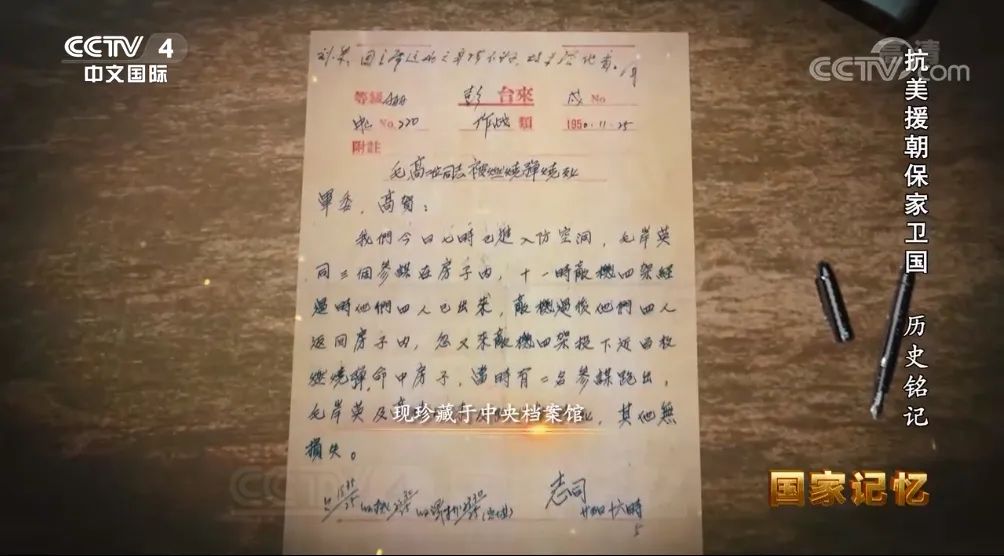 CCTV 4
中文国际
高清
CCTV.com
抗美援朝保家卫国 历史铭记
等級 彭 台來 No
No.220 作战 類 1950.11.25
附註
毛高 同志被燃燒彈燒死
軍委,高賀:
我們今日七時已進入防空洞,毛岸英
同三個參謀在房子内,十一時敵機四架經
過時他們四人已出來,敵機過後他們四人
返回房子内,忽又來敵機四架投下近百枚
燃燒彈,命中房子,當時有二名參謀跑出,
毛岸英及高
现珍藏于中央档案馆
,其他無
損失。
志司
十六時
CCTV 4
国家记忆